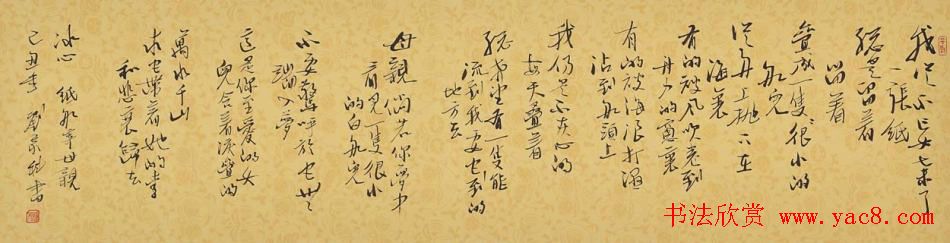 我從不肯妄棄了
一張紙
總是留着
留着
疊成一隻很小的
船兒
從舟上拋下在
海裏
有的被風吹卷到
舟中的窗裏
有的被海浪打濕
沾到船頭上
我仍是不灰心的
每天疊着
總希望有一隻能
流到我要它到的
地方去
母親倘若你夢中
看見一隻很小
的白船兒
不要驚呼於它無
端入夢
這是你至愛的女
兒含着淚疊的
萬水千山
求它載着她的愛
和悲哀歸去
冰心 紙船寄母親
己丑
书法欣赏
www.yac8.com